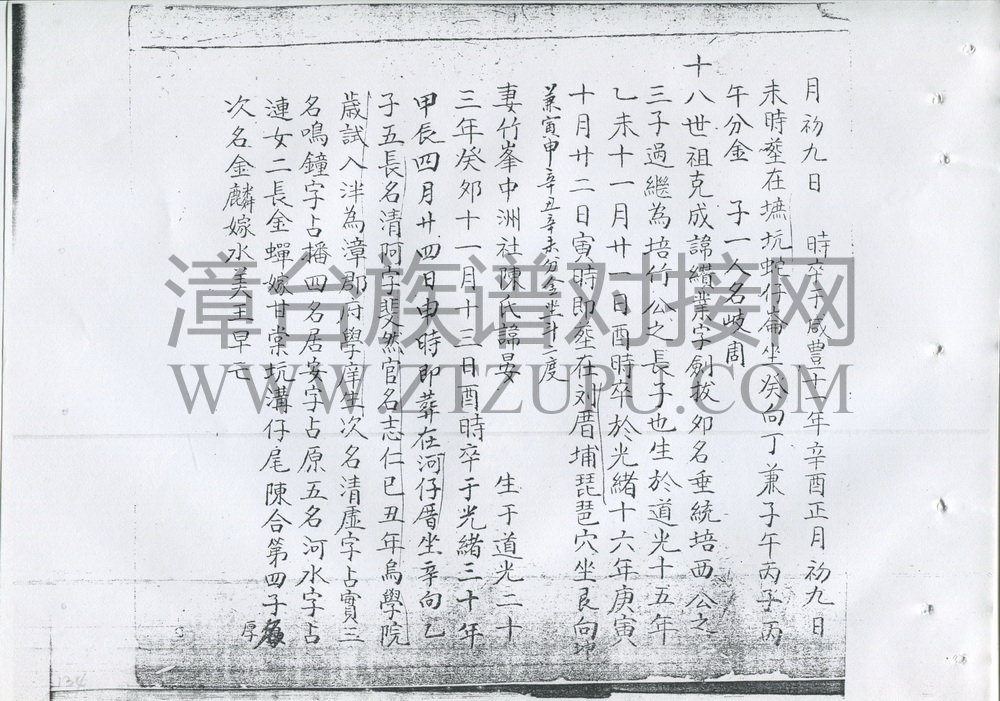 月初九日 時卒于咸豊十一年辛酉正月初九日
未時塟在墟坑蛇仔崙坐癸向丁兼子午丙子丙
午分金 子一人名岐周
十八世祖克成諱纘業字創拔夘名垂統培西公之
三子過繼為培竹公之長子也生於道光十五年
乙未十一月廿一日酉時卒於光緒十六年庚寅
十月廿二日寅時即塟在刘厝埔琵琶穴坐艮向坤
兼寅申辛丑辛未分金坐廿二度
妻竹峯中洲社陳氏諱晏 生于道光二十
三年癸夘十一月十三日酉時卒于光緒三十年
甲辰四月廿四日申時即葬在河仔厝坐辛向乙
子五長名清阿字斐然官名志仁已丑年烏學院
歲試入泮為漳郡府學庠生次名清虛字占賓三
名鳴鐘字占播四名居安字占原五名河水字占
漣女二長金蟬嫁甘棠坑溝仔尾陳合第四子厚
次名金麟嫁水美王早亡
漳台族谱对接网
WWW.ZTZUPU.COM
134